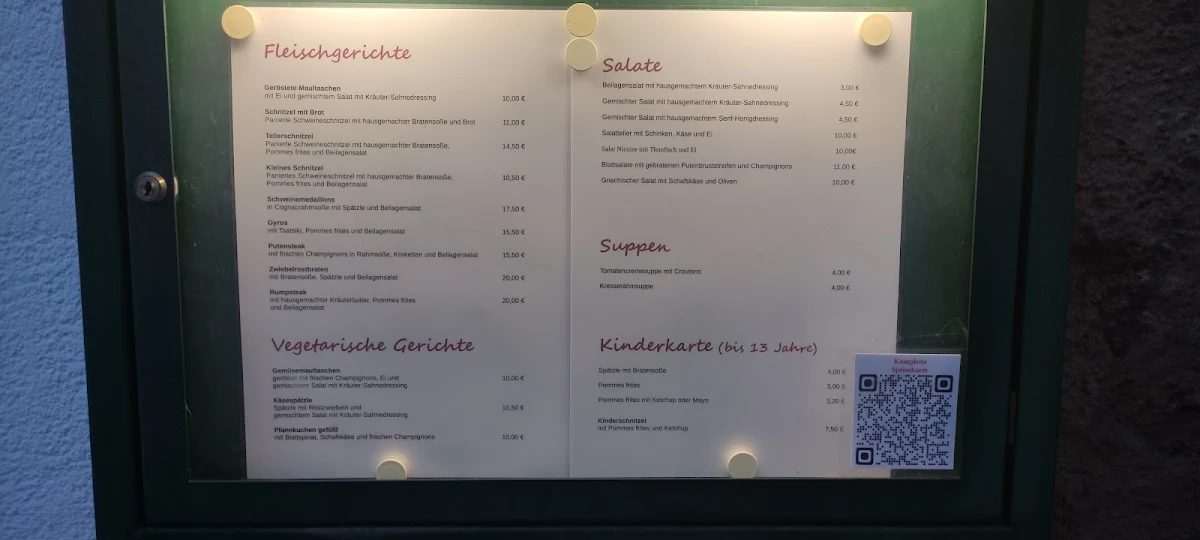 Fleischgerichte
Geröstete Maultaschen
mit Ei und gemischtem Salat mit Kräuter-Sahnedressing 10,00 €
Schnitzel mit Brot
Panierte Schweineschnitzel mit hausgemachter Bratensoße und Brot 11,00 €
Tellerschnitzel
Panierte Schweineschnitzel mit hausgemachter Bratensoße,
Pommes frites und Beilagensalat 14,50 €
Kleines Schnitzel
Paniertes Schweineschnitzel mit hausgemachter Bratensoße,
Pommes frites und Beilagensalat 10,50 €
Schweinemedaillons
in Cognacrahmsoße mit Spätzle und Beilagensalat 17,50 €
Gyros
mit Tsatsiki, Pommes frites und Beilagensalat 15,50 €
Putensteak
mit frischen Champignons in Rahmsoße, Kroketten und Beilagensalat 15,50 €
Zwiebelrostbraten
mit Bratensoße, Spätzle und Beilagensalat 20,00 €
Rumpsteak
mit hausgemachter Kräuterbutter, Pommes frites 20,00 €
und Beilagensalat
Vegetarische Gerichte
Gemüsemaultaschen
geröstet mit frischen Champignons, Ei und 10,00 €
gemischtem Salat mit Kräuter-Sahnedressing
Käsespätzle
Spätzle mit Röstzwiebeln und 10,50 €
gemischtem Salat mit Kräuter-Sahnedressing
Pfannkuchen gefüllt
mit Blattspinat, Schafskäse und frischen Champignons 10,00 €
Salate
Beilagensalat mit hausgemachtem Kräuter-Sahnedressing 3,00 €
Gemischter Salat mit hausgemachtem Kräuter-Sahnedressing 4,50 €
Gemischter Salat mit hausgemachtem Senf-Honigdressing 4,50 €
Salatteller mit Schinken, Käse und Ei 10,00 €
Salat Nicoise mit Thunfisch und Ei 10,00€
Blattsalate mit gebratenen Putenbruststreifen und Champignons 11,00 €
Griechischer Salat mit Schafskäse und Oliven 10,00 €
Suppen
Tomatencremesuppe mit Croutons 4,00 €
Kresserahmsuppe 4,00 €
Kinderkarte (bis 13 Jahre)
Spätzle mit Bratensoße 4,00 €
Pommes frites 3,00 €
Pommes frites mit Ketchup oder Mayo 3,20 €
Kinderschnitzel
mit Pommes frites und Ketchup 7,50 €
Komplette
Speisekarte